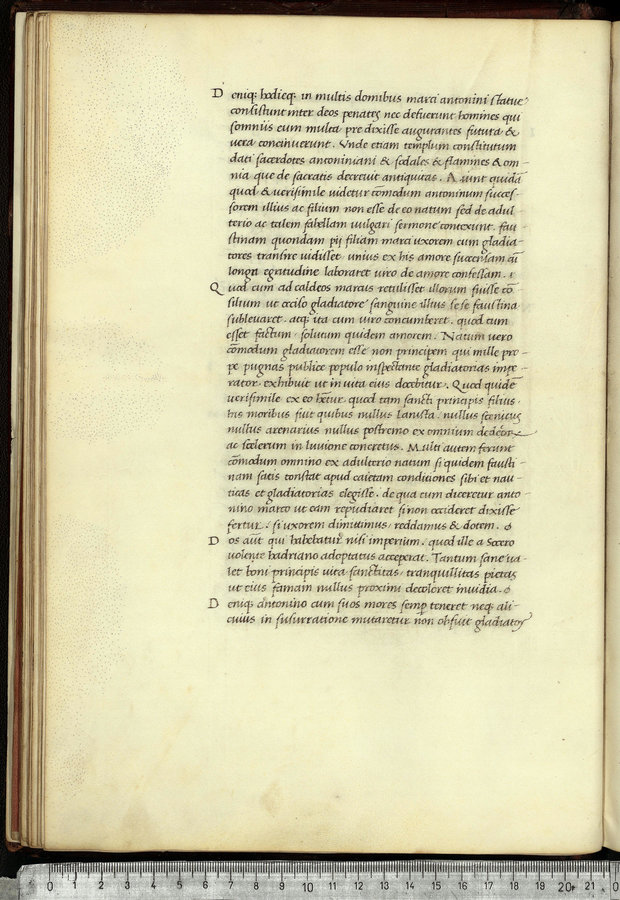 D eniq; hodieq; in multis domibus marci antonini statue
consistunt inter deos penates nec defuerunt homines qui
somniis eum multa pre dixisse augurantes futura &
uera concinuerunt. Vnde etiam templum constitutum
dati sacerdotes antoniniani & sodales & flamines & om-
nia que de sacratis decreuit antiquitas. Aiunt quidā
quod & uerisimile uidetur cōmodum antoninum succes-
sorem illius ac filium non esse de eo natum sed de adul
terio ac talem fabellam uulgari sermone contexunt. fau
stinam quondam pij filiam marci uxorem cum gladia-
tores transire uidisset unius ex his amore succensam cū
longa egritudine laboraret uiro de amore confessam.
Q uod cum ad caldeos marcus retulisset illorum fuisse cō-
silium ut occiso gladiatore sanguine illius se se faustina
subleuaret. atq; ita cum uiro concumberet. quod cum
esset factum solutum quidem amorem. Natum uero
cōmodum gladiatorem esse non principem qui mille pro-
pe pugnas publice populo inspectante gladiatorias impe-
rator exhibuit ut in uita eius docebitur. Quod quidē
uerisimile ex eo hētur quod tam sancti principis filius
his moribus fuit quibus nullus lanista. nullus scenicus
nullus arenarius nullus postremo ex omnium dedecore
ac scelerum in luuione concretus. Multi autem ferunt
cōmodum omnino ex adulterio natum si quidem fausti-
nam satis constat apud caietam conditiones sibi et nau-
ticas et gladiatorias elegisse. de qua cum diceretur anto-
nino marco ut eam repudiaret si non occideret dixisse
fertur. si uxorem dimittimus reddamus & dotem.
D os aūt qui habebatur nisi imperium. quod ille a socero
uolente hadriano adoptatus acceperat. Tantum sane ua-
let boni principis uita sanctitas tranquillitas pietas
ut eius famam nullus proximi decoloret inuidia.
D eniq; antonino cum suos mores semp̄ teneret neq; ali-
cuius in susurratione mutaretur non obfuit gladiator
0 1 2 3 4 5 6 7 8 9 10 11 12 13 14 15 16 17 18 19 20 21 0